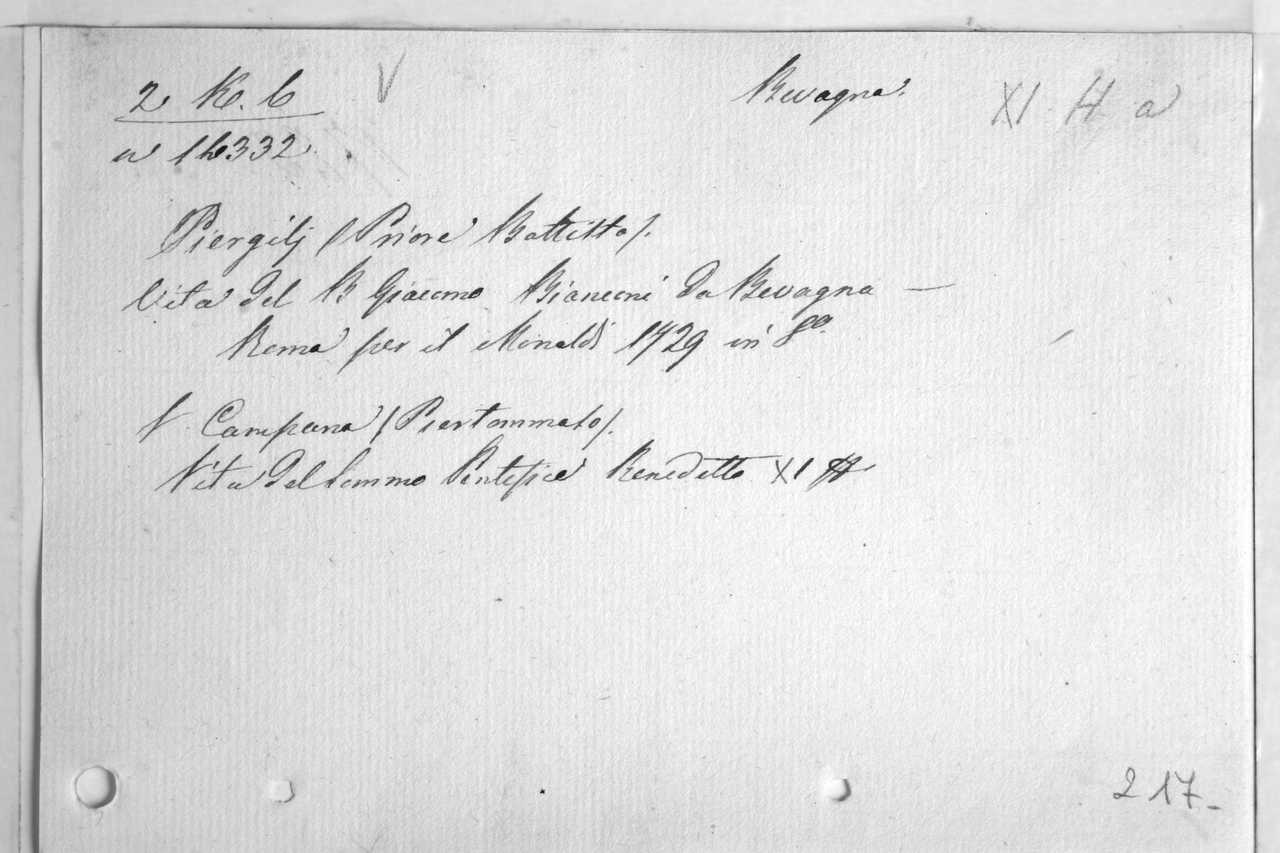 2 K. 6 V Bevagna. XI H a
n 16332.
Piergilj (Priore Battista).
Vita del B Giacomo Bianconi da Bevagna —
Roma per il Monaldi 1729 in 8°.
V. Campana (Piertommaso).
Vita del Sommo Pontefice Benedetto XI H
217-